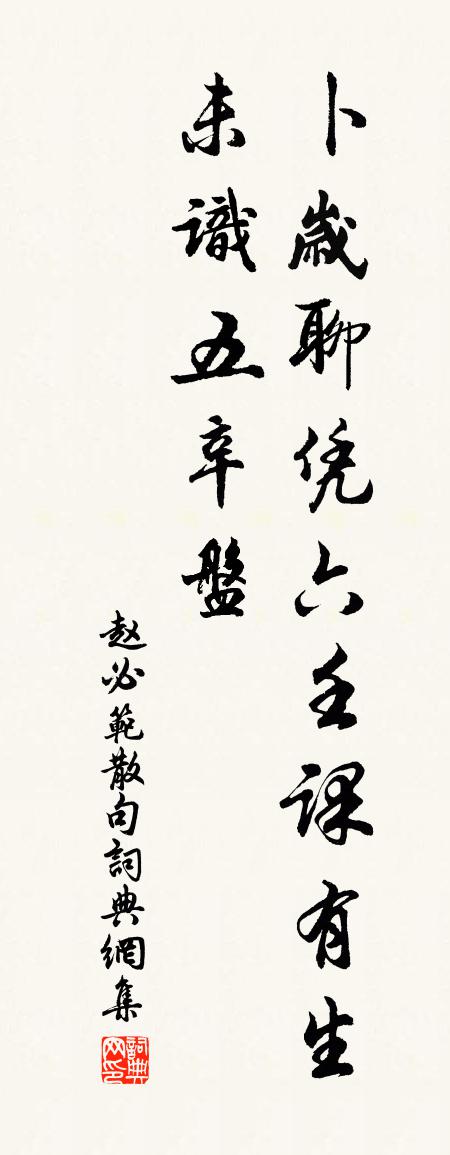 卜歲聊凭六壬課有生
未識五辛盤
赵必範散句詞典網集
詞典网印